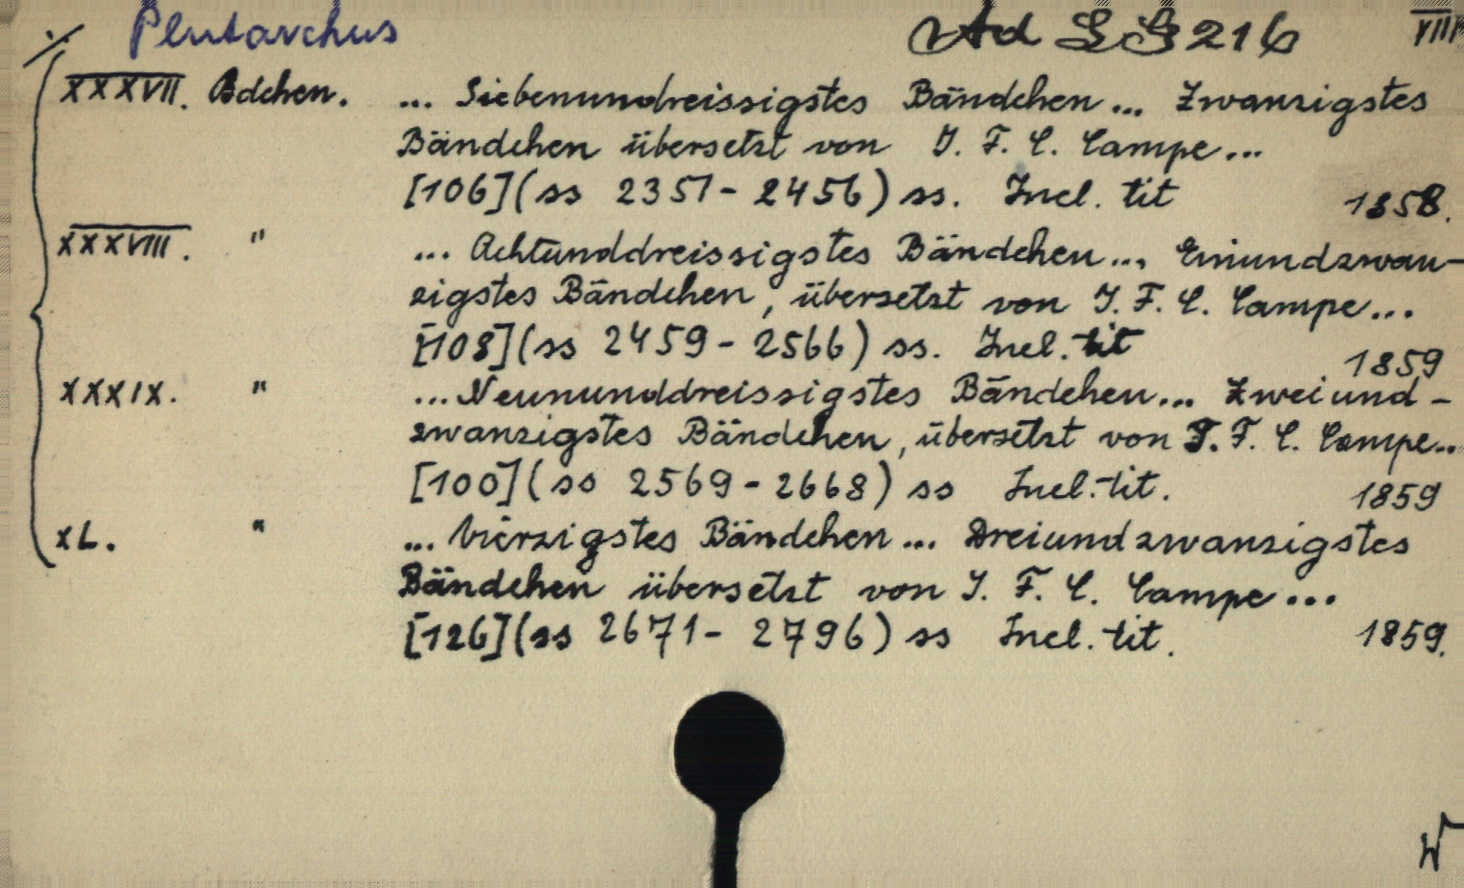 ·/. Plutarchus Ad SS 216 VIII
XXXVII. Bdchen. ... Siebenundreissigstes Bändchen ... Zwanzigstes
Bändchen übersetzt von J. F. C. Campe ...
[106] (ss 2351 - 2456) ss. Incl. tit 1858.
XXXVIII. " ... Achtunddreissigstes Bändchen ... Einundzwan-
zigstes Bändchen, übersetzt von J. F. C. Campe ...
[108] (ss 2459 - 2566) ss. Incl. tit 1859
XXXIX. " ... Neununddreissigstes Bändchen ... Zweiund-
zwanzigstes Bändchen, übersetzt von J. F. C. Campe ...
[100] (ss 2569 - 2668) ss Incl. tit. 1859
XL. " ... Vierzigstes Bändchen ... Dreiundzwanzigstes
Bändchen übersetzt von J. F. C. Campe ...
[126] (ss 2671 - 2796) ss Incl. tit. 1859.